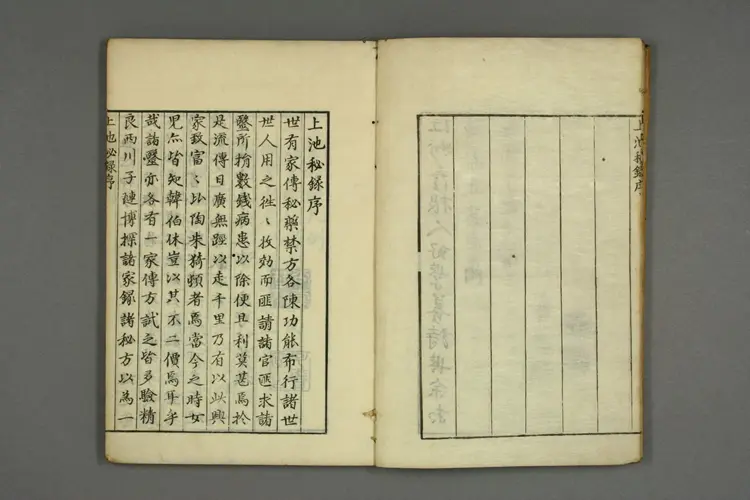 上池秘録序
上池秘録序
世有家傳秘藥禁方各陳功能布行諸世
世人用之徃〻收効而匪請諸官匪求諸
毉所揄數錢病患以除便且利莫甚焉於
是流傳日廣無踁以走千里乃有以此興
家致富〻比陶朱猗頓者焉當今之時女
兒亦皆知韓伯休豈以其不二價焉耳乎
哉諸毉亦各有一家傳方試之皆多驗精
良西川子璉博探諸家録諸秘方以為一
上池秘録序